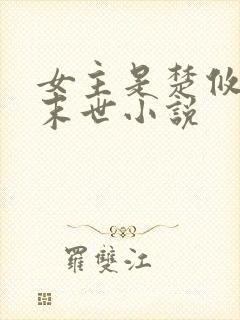 女主是楚攸
末世小説
羅雙江